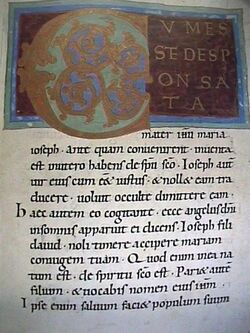 CVMES
SET DESP
ONSA
TA
mater ihu maria
ioseph · ante quam convenirent · inventa
est in utero habens de spu sco · Ioseph aut
vir eius cum eet iustus · & noll& eam tra
ducere · voluit occulte dimittere eam ·
haec autem eo cogitante · ecce angelus dni
in somnis apparuit ei dicens · Ioseph fili
david · noli timere accipere mariam
coniugem tuam · Quod enim in ea na
tum est · de spiritu sco est · Pari& aut
filium · & vocabis nomen eius ihm ·
Ipse enim salvum faci& populum suum